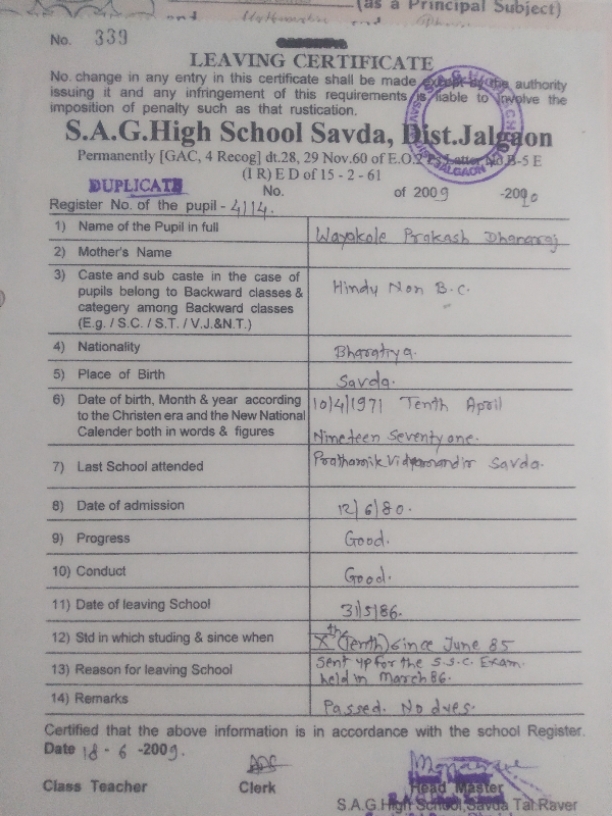 (as a Principal Subject)
and
No. 339
LEAVING CERTIFICATE
No. change in any entry in this certificate shall be made except by the authority
issuing it and any infringement of this requirements is liable to involve the
imposition of penalty such as that rustication.
S.A.G.High School Savda, Dist.Jalgaon
Permanently [GAC, 4 Recog] dt.28, 29 Nov.60 of E.O.2 Ps Letter No B-5 E
(I R) E D of 15 - 2 - 61
DUPLICATE No. of 2009 -2010
Register No. of the pupil - 4114.
1) Name of the Pupil in full Wayakole Prakash Dhanaraj
2) Mother's Name
3) Caste and sub caste in the case of
pupils belong to Backward classes &
categery among Backward classes
(E.g. / S.C. / S.T. / V.J.&N.T.)
Hindu Non B.C.
4) Nationality Bharatiya.
5) Place of Birth Savda.
6) Date of birth, Month & year according
to the Christen era and the New National
Calender both in words & figures
10/4/1971 Tenth April
Nineteen Seventy one.
7) Last School attended Prathamik Vidyamandir Savda.
8) Date of admission 12/6/80.
9) Progress Good.
10) Conduct Good.
11) Date of leaving School 31/5/86.
12) Std in which studing & since when Xth (Tenth) since June 85
13) Reason for leaving School Sent up for the S.S.C. Exam.
held in March 86.
14) Remarks Passed. No dues.
Certified that the above information is in accordance with the school Register.
Date 18 - 6 -2009.
Class Teacher Clerk Head Master
S.A.G.High School,Savda Tal.Raver